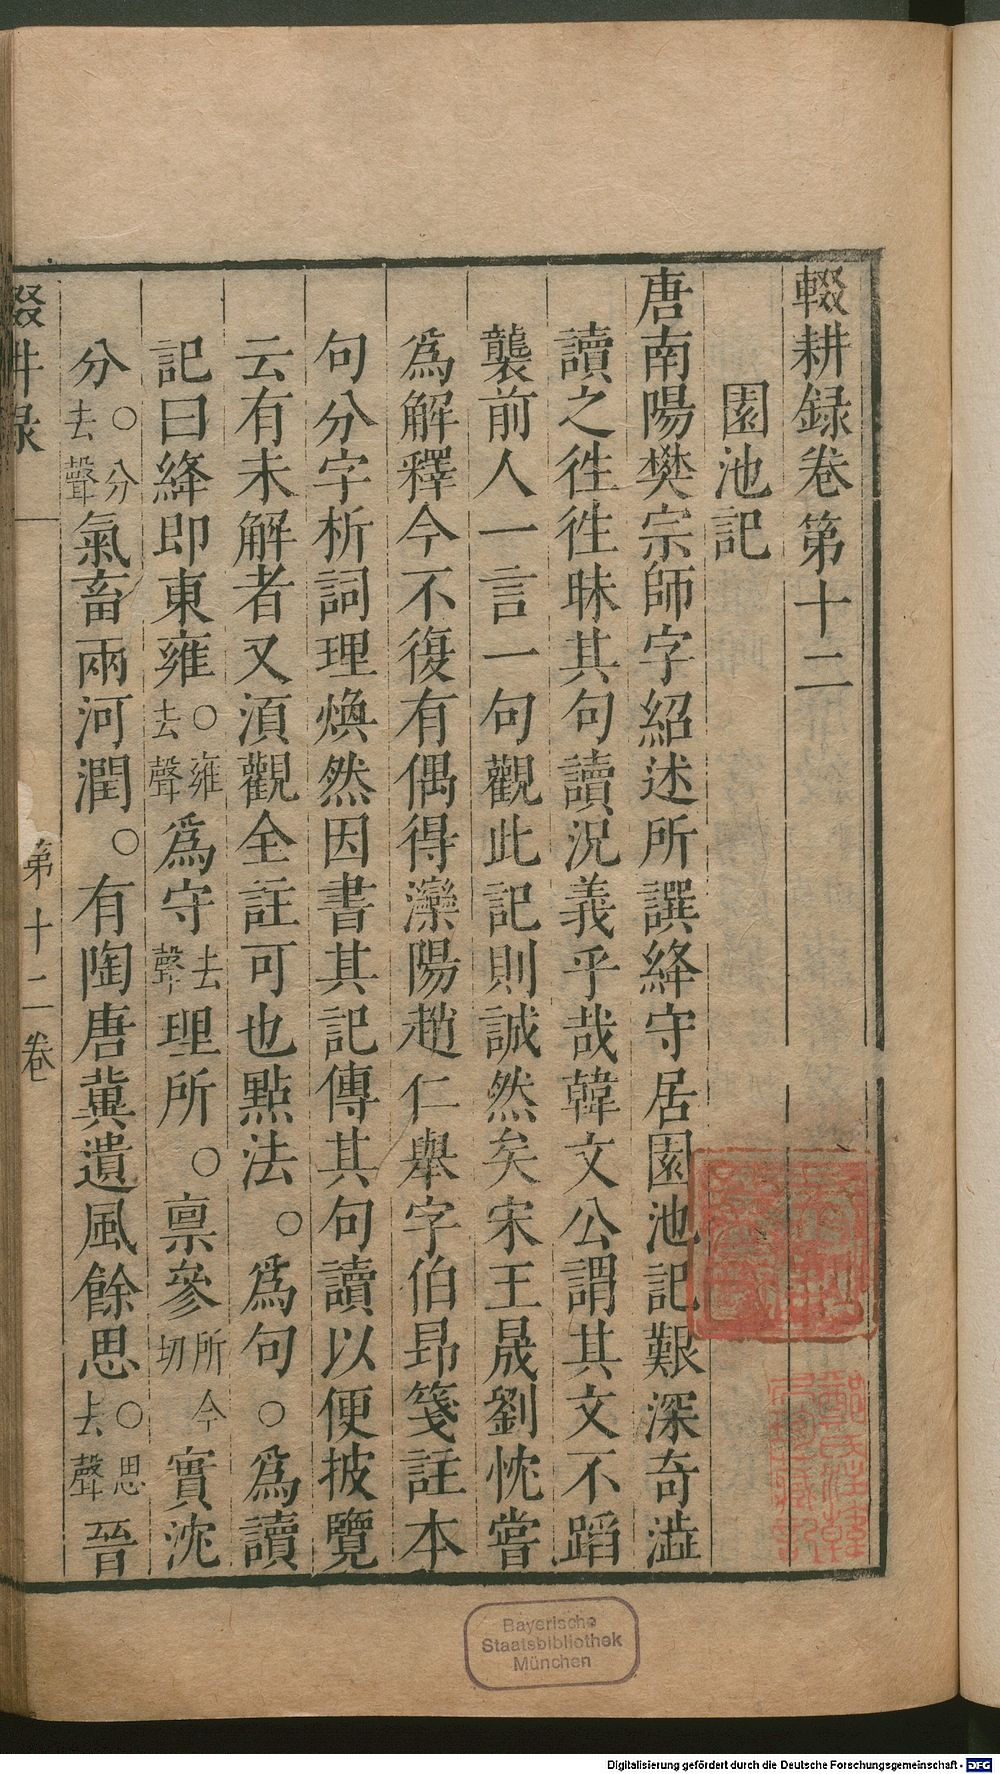 輟耕録卷第十二
園池記
唐南陽樊宗師字紹述所譔絳守居園池記艱深奇澁
讀之徃徃昧其句讀況義乎哉韓文公謂其文不蹈
襲前人一言一句觀此記則誠然矣宋王晟劉忱嘗
爲解釋今不復有偶得灤陽趙仁舉字伯昻箋註本
句分字析詞理煥然因書其記傳其句讀以便披覽
云有未解者又湏觀全註可也點法○爲句○爲讀
記曰絳即東雍○雍去聲爲守去聲理所○禀參所今切實沈
分○分去聲氣畜兩河潤○有陶唐冀遺風餘思○思去聲晉
輟耕録
第十二卷
Bayerische
Staatsbibliothek
München
Digitalisierung gefördert durch die Deutsche Forschungsgemeinschaft - DFG